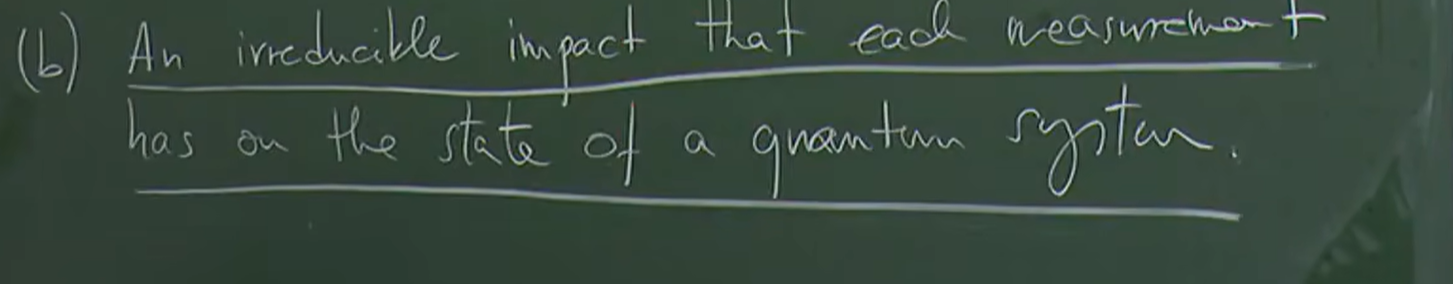 (b) An irreducible impact that each measurement
has on the state of a quantum system.